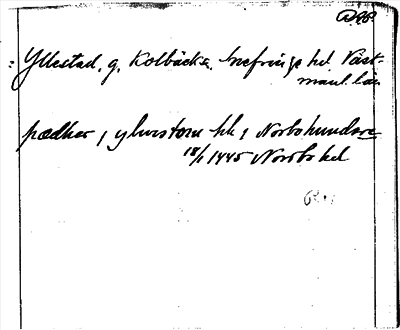 Yllestad, g. Kolbäcks, Snefringe hd Väst-
manl. län
pædher i ylurstom hh, Norbohundare
18/1 1445 Norrbo hd